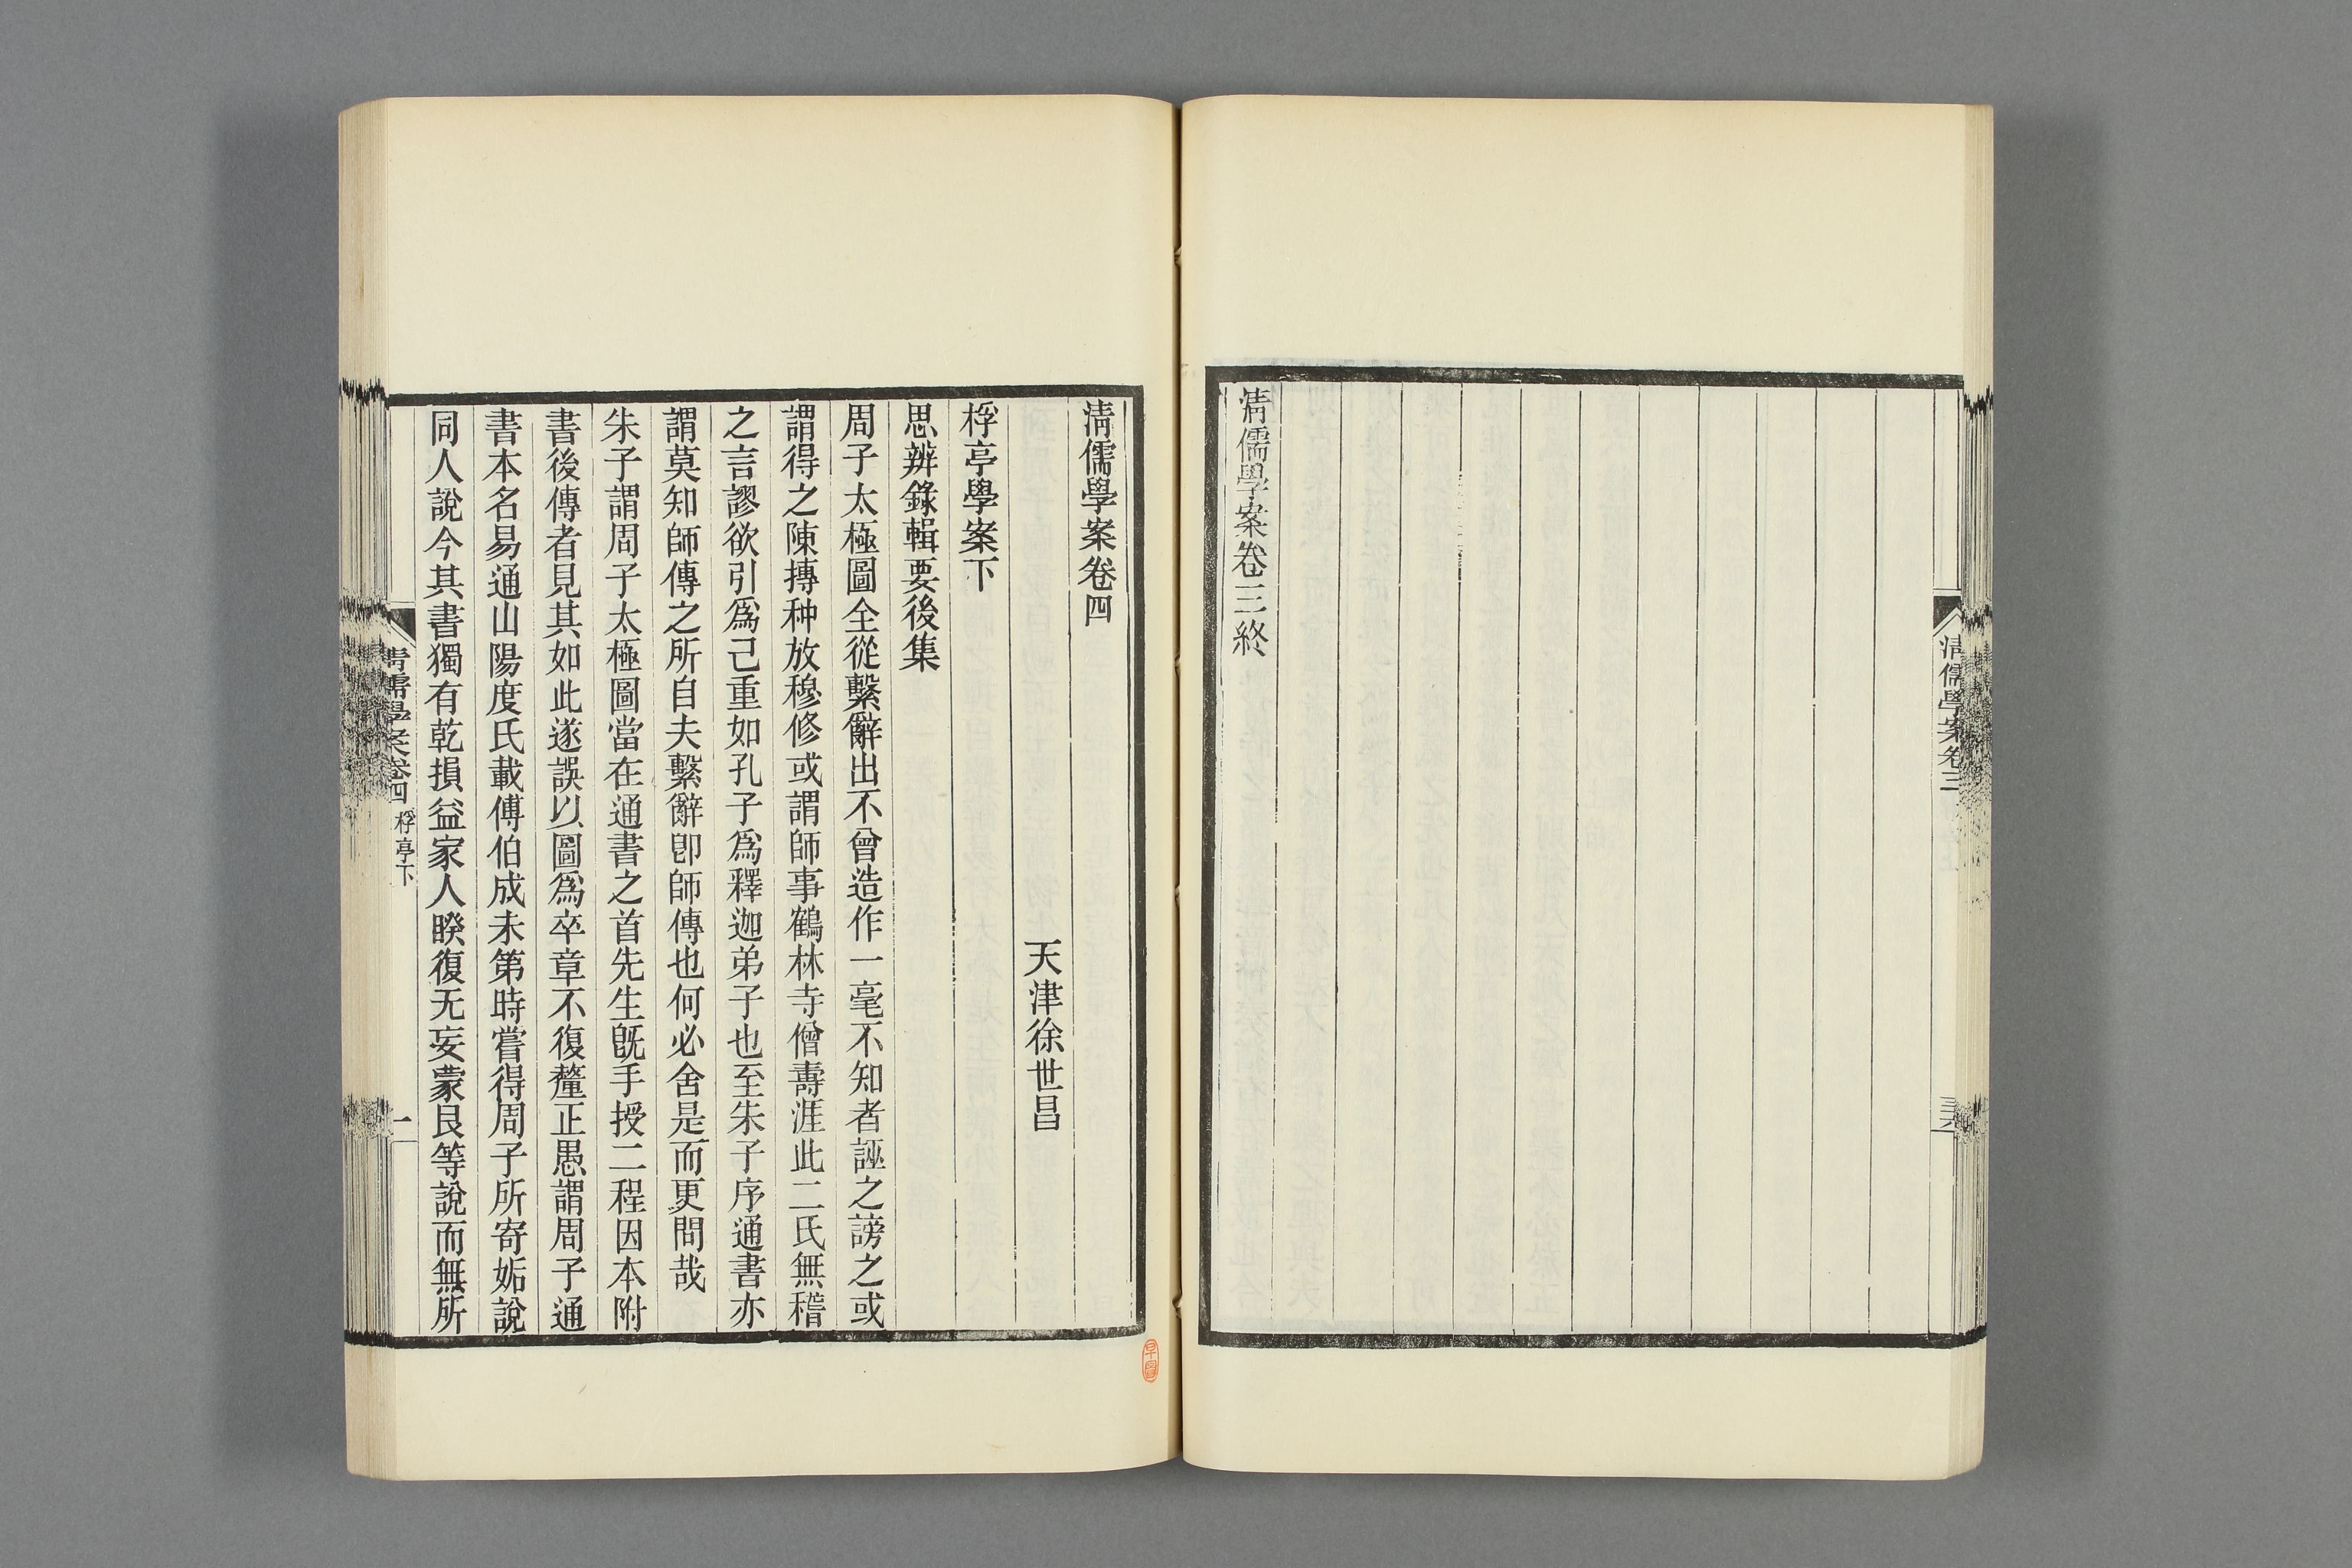 清儒學案卷三
三六
清儒學案卷三終
清儒學案卷四
天津徐世昌
桴亭學案下
思辨錄輯要後集
周子太極圖全從繫辭出不曾造作一毫不知者誣之謗之或
謂得之陳摶种放穆修或謂師事鶴林寺僧壽涯此二氏無稽
之言謬欲引爲己重如孔子爲釋迦弟子也至朱子序通書亦
謂莫知師傳之所自夫繫辭卽師傳也何必舍是而更問哉
朱子謂周子太極圖當在通書之首先生旣手授二程因本附
書後傳者見其如此遂誤以圖爲卒章不復釐正愚謂周子通
書本名易通山陽度氏載傅伯成未第時嘗得周子所寄姤說
同人說今其書獨有乾損益家人睽復无妄蒙艮等說而無所
清儒學案卷四 桴亭下
一